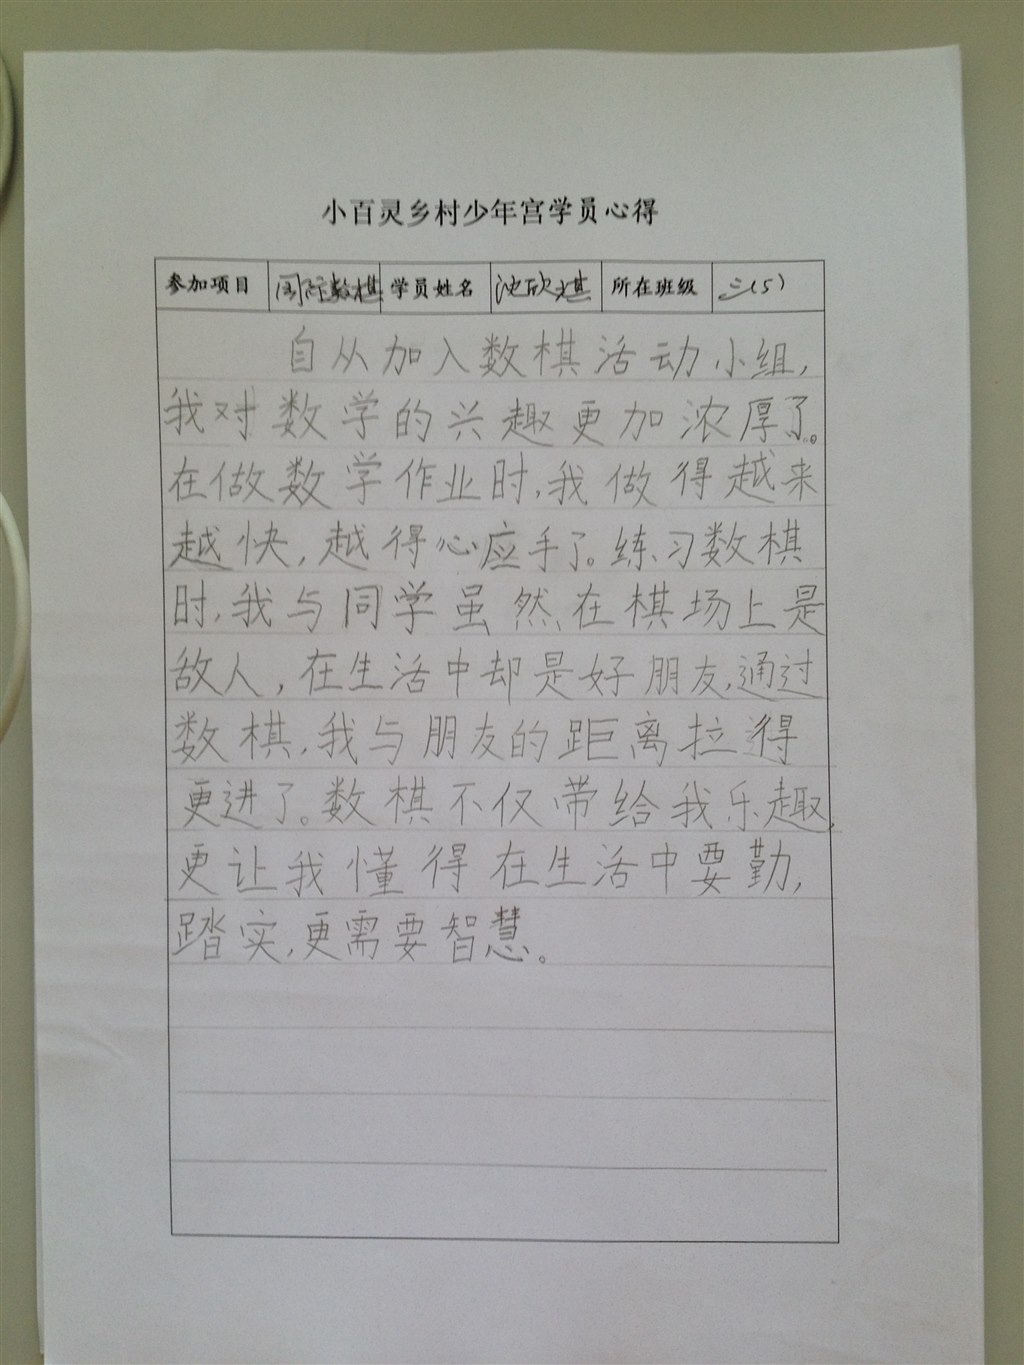 小百灵乡村少年宫学员心得
参加项目 国际数棋 学员姓名 沈欣棋 所在班级 三(5)
自从加入数棋活动小组,
我对数学的兴趣更加浓厚了。
在做数学作业时,我做得越来
越快,越得心应手了。练习数棋
时,我与同学虽然在棋场上是
敌人,在生活中却是好朋友,通过
数棋,我与朋友的距离拉得
更进了。数棋不仅带给我乐趣,
更让我懂得在生活中要勤,
踏实,更需要智慧。